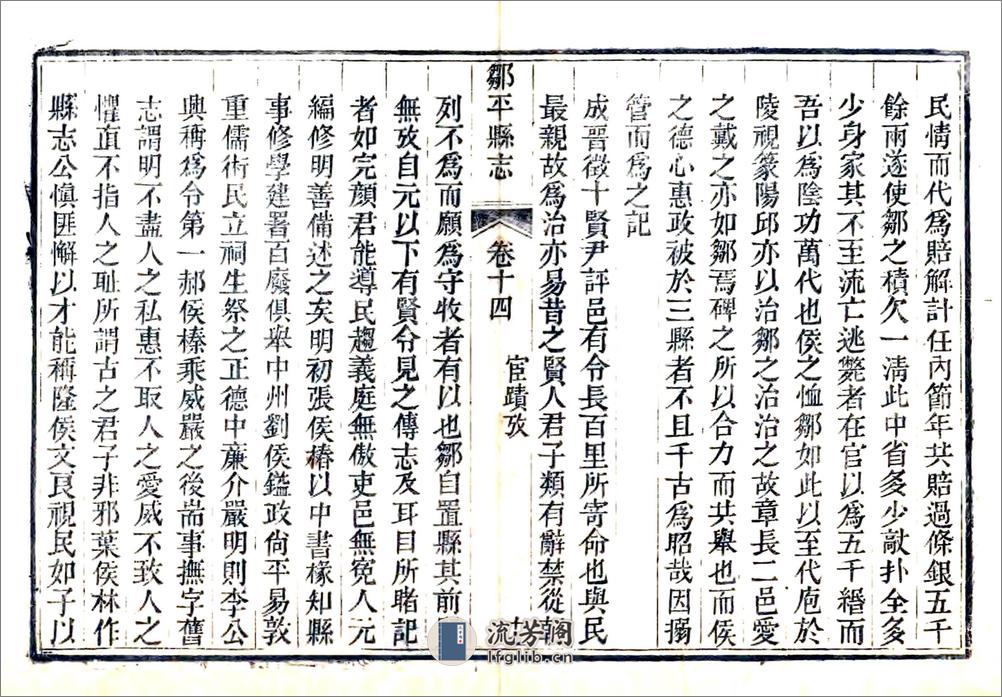 民情而代爲賠解計任內節年共賠過條銀五千
餘兩遂使鄒之積欠一清此中省多少敲扑全多
少身家其不至流亡逃斃者在官以爲五千緡而
吾以爲陰功萬代也侯之恤鄒如此以至代庖於
陵視篆陽邱亦以治鄒之治治之故章長二邑愛
之戴之亦如鄒焉碑之所以合力而共舉也而侯
之德心惠政被於三縣者不且千古爲昭哉因搦
管而爲之記
成晉徵十賢尹評邑有令長百里所寄命也與民
最親故爲治亦易昔之賢人君子類有辭禁從
鄒平縣志
卷十四
宦蹟攷
列不爲而願爲守牧者有以也鄒自置縣其前
無攷自元以下有賢令見之傳志及耳目所睹記
者如完顏君能導民趨義庭無傲吏邑無冤人元
編修明善備述之矣明初張侯椿以中書椽知縣
事修學建署百廢俱舉中州劉侯鑑政尙平易敦
重儒術民立祠生祭之正德中亷介嚴明則李公
興稱爲令第一郝侯榛乘威嚴之後耑事撫字舊
志謂明不盡人之私惠不取人之愛威不致人之
懼直不指人之耻所謂古之君子非邪葉侯林作
縣志公愼匪懈以才能稱隆侯文良視民如子以
流芳閣
lfglib.cn